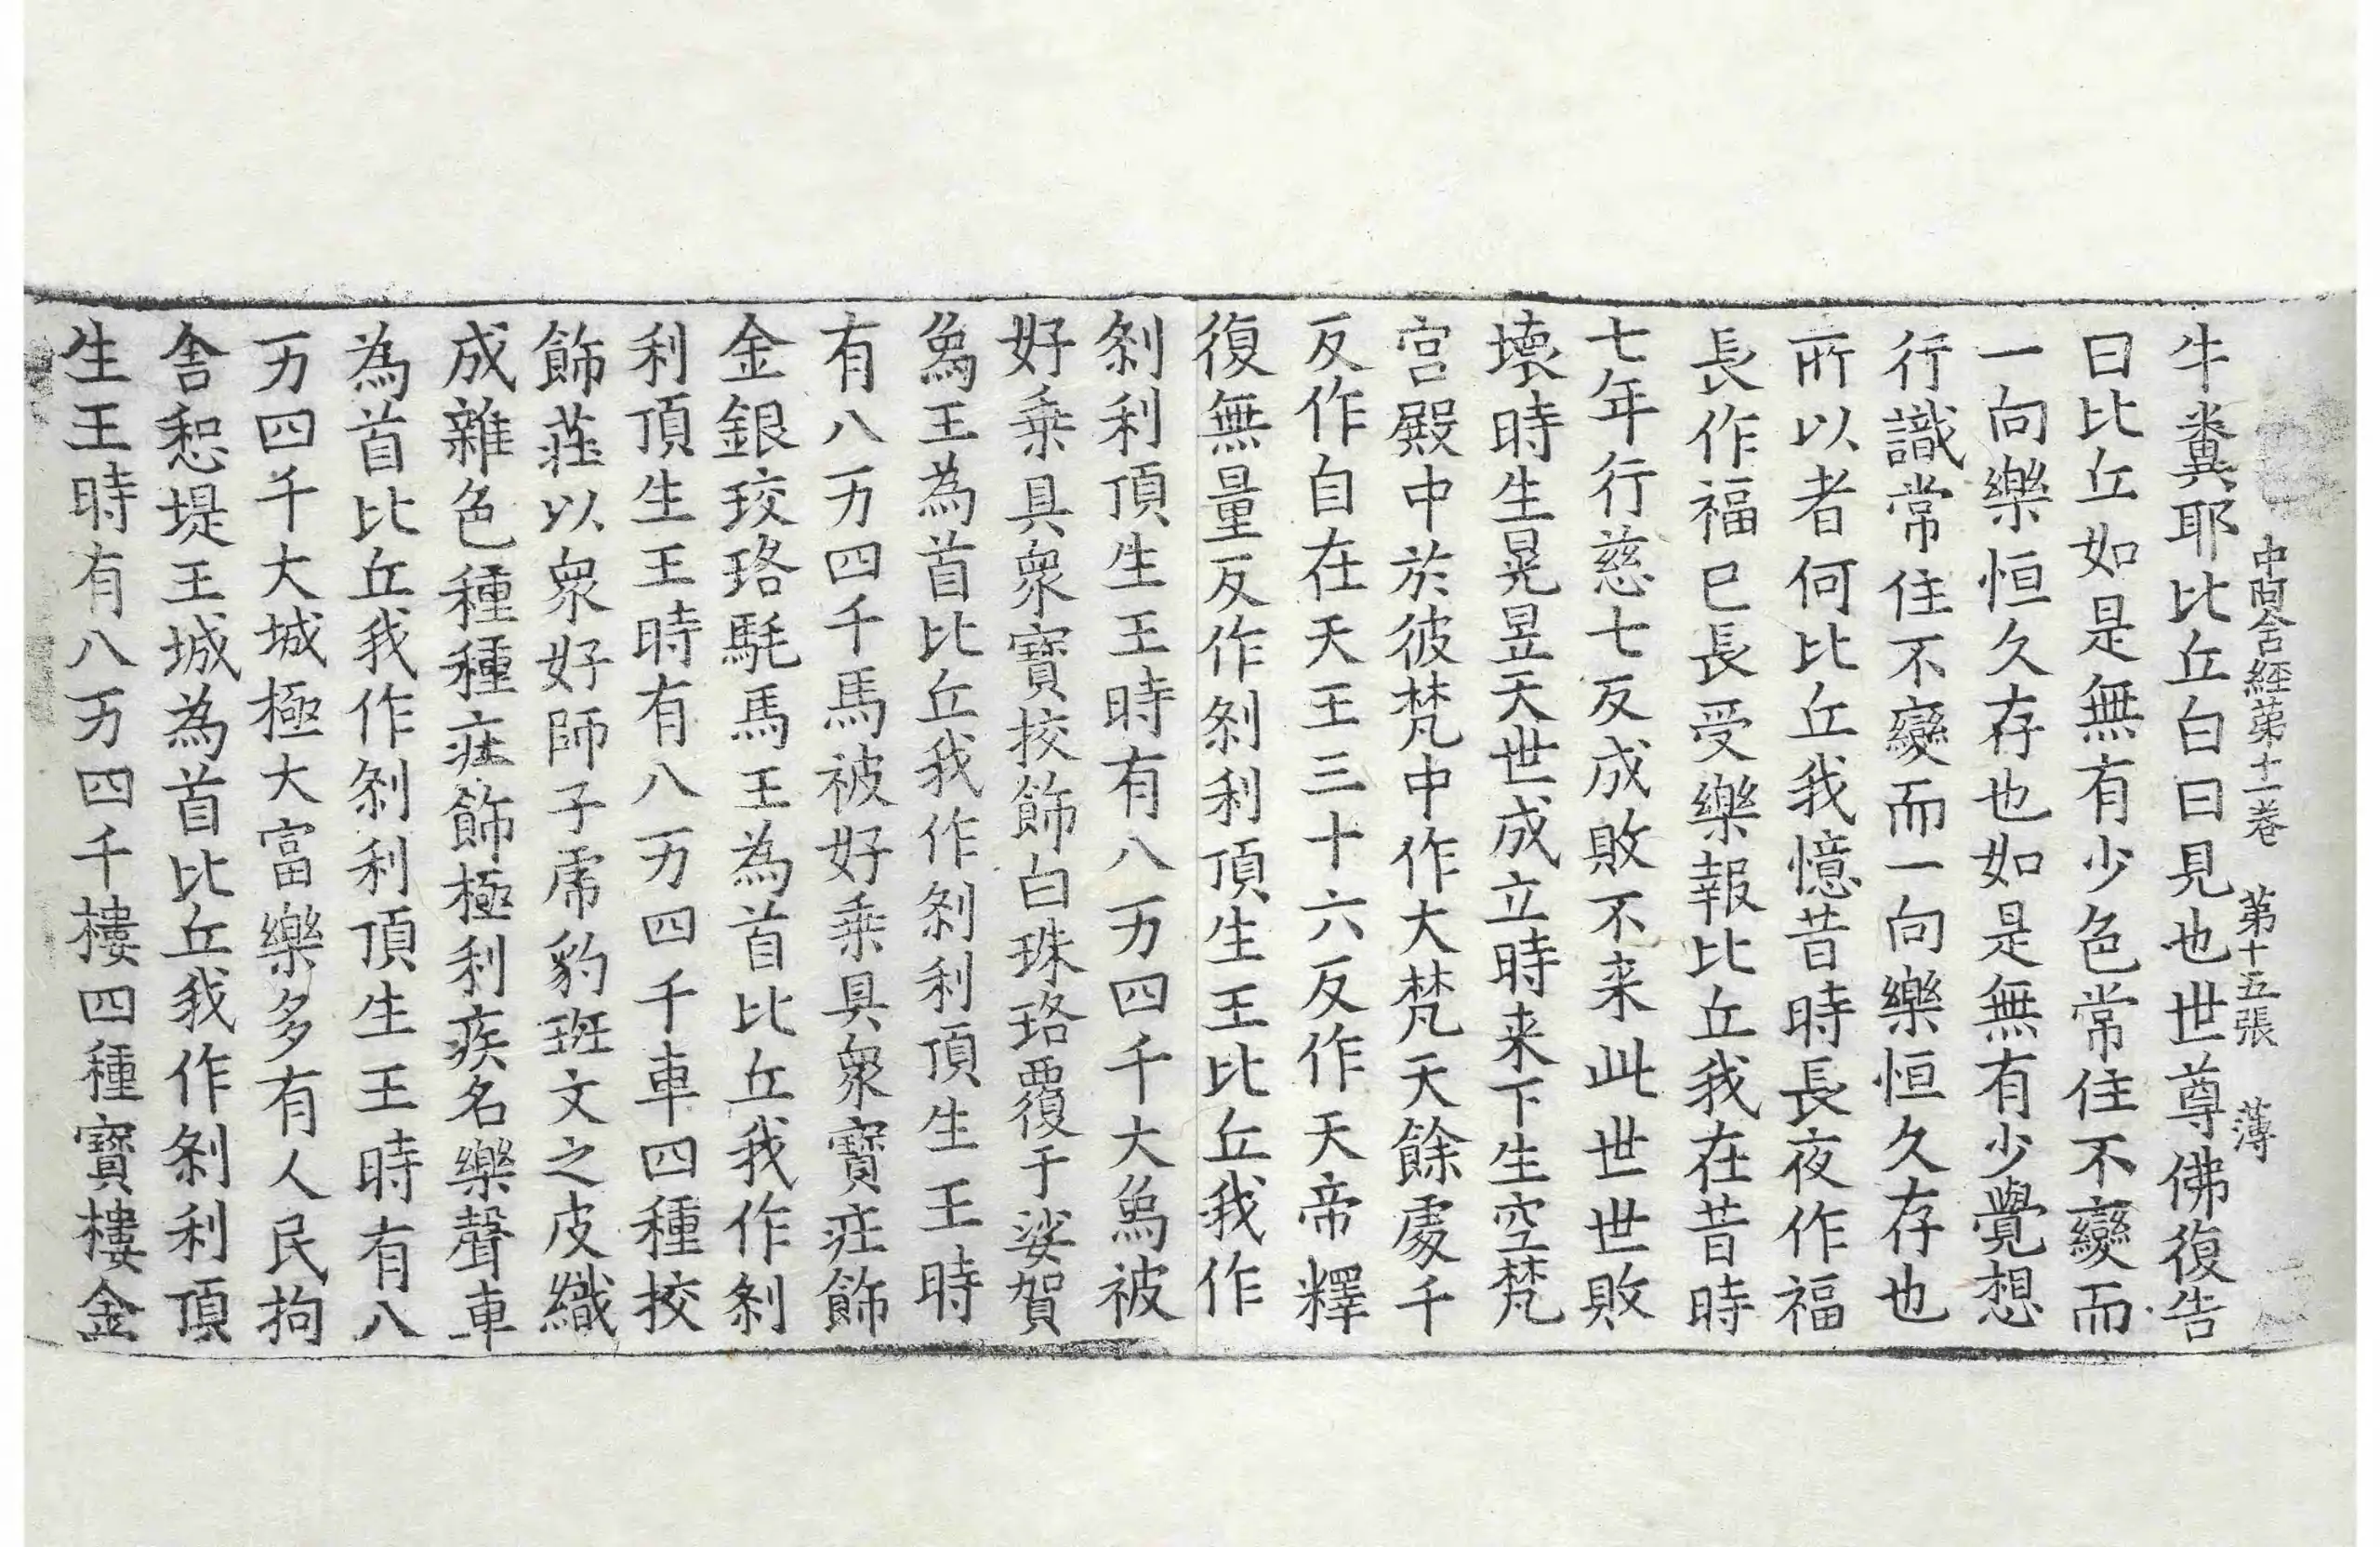 中阿含經第十一卷 第十五張 薄
牛糞耶比丘白曰見也世尊佛復告
曰比丘如是無有少色常住不變而
一向樂恒久存也如是無有少覺想
行識常住不變而一向樂恒久存也
所以者何比丘我憶昔時長夜作福
長作福已長受樂報比丘我在昔時
七年行慈七反成敗不来此世世敗
壞時生晃昱天世成立時来下生空梵
宫殿中於彼梵中作大梵天餘處千
反作自在天王三十六反作天帝釋
復無量反作剎利頂生王比丘我作
剎利頂生王時有八万四千大象被
好乗具衆寶挍飾白珠珞覆于娑賀
象王為首比丘我作剎利頂生王時
有八万四千馬被好乗具衆寶莊飾
金銀珓珞髦馬王為首比丘我作剎
利頂生王時有八万四千車四種挍
飾莊以衆好師子虎豹斑文之皮織
成雜色種種莊飾極利疾名樂聲車
為首比丘我作剎利頂生王時有八
万四千大城極大富樂多有人民拘
舍惒堤王城為首比丘我作剎利頂
生王時有八万四千樓四種寶樓金